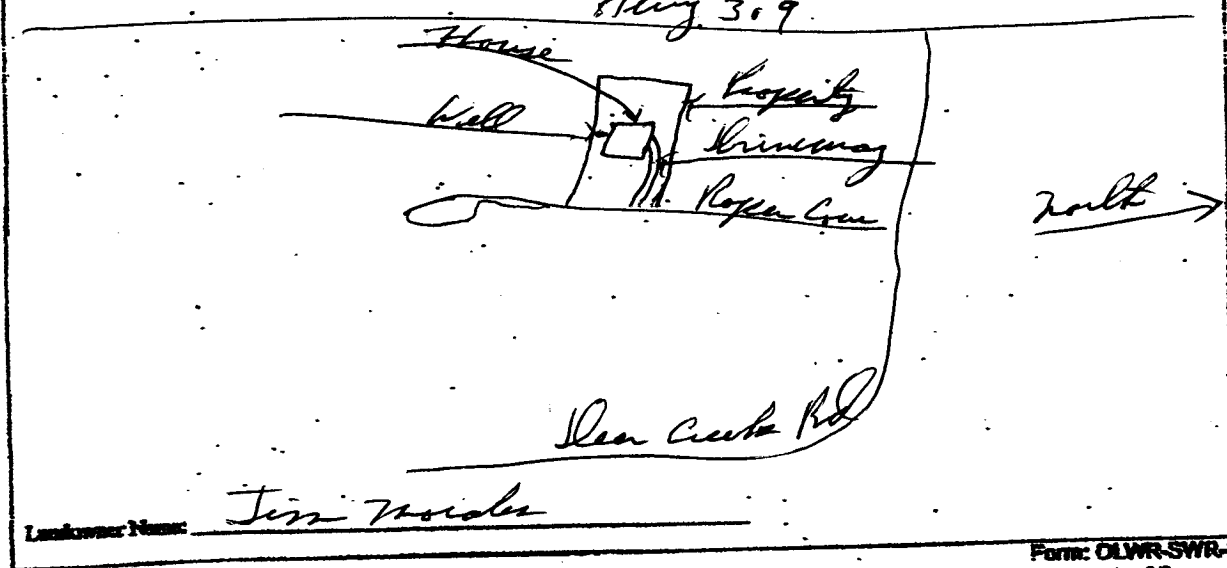 Hwy 309
House
Property
Well
Driveway
Roper Cove
North
Deer Creek Rd
Landowner Name: Jim Morales
Form: OLWR-SWR-